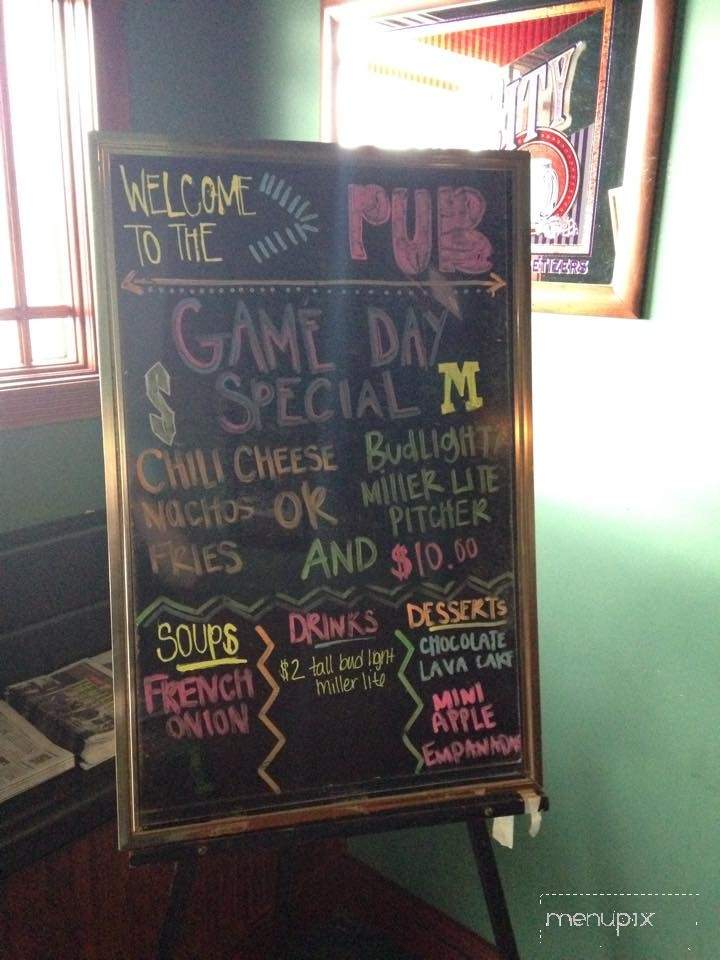 WELCOME
TO THE
PUB
GAME DAY
S SPECIAL M
CHILI CHEESE
NACHOS OR
FRIES
AND
BUDLIGHT/
MILLER LITE
PITCHER
$10.00
SOUPS
FRENCH
ONION
DRINKS
$2 tall bud light
miller lite
DESSERTS
CHOCOLATE
LAVA CAKE
MINI
APPLE
EMPANADA
menupix